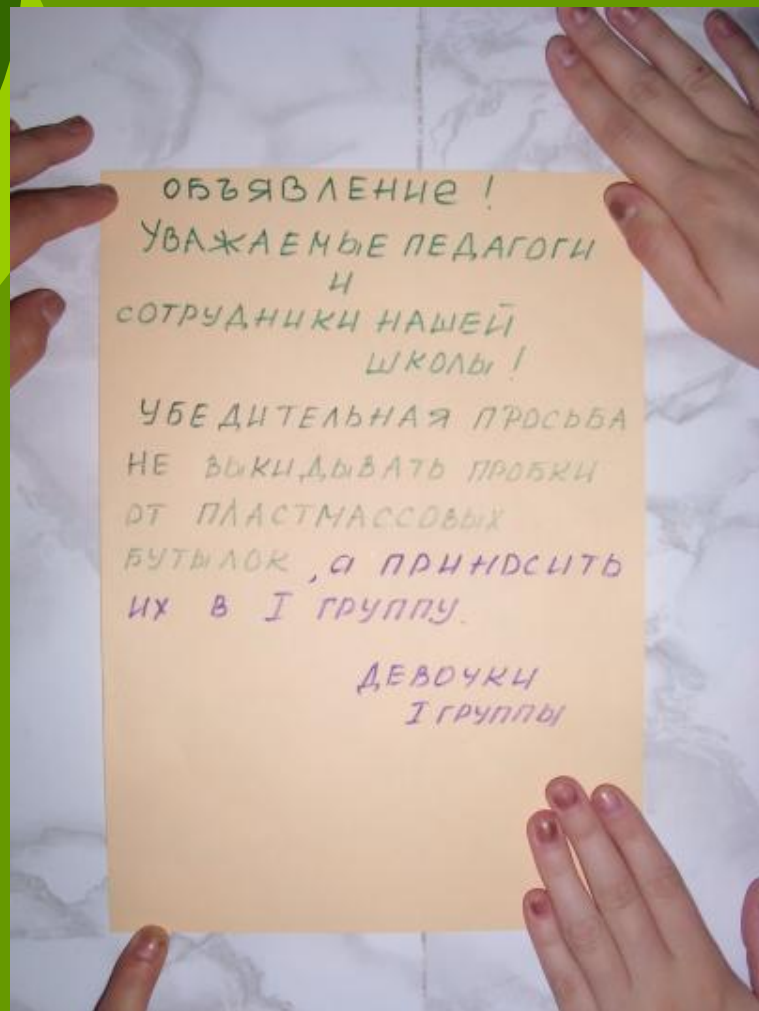 ОБЪЯВЛЕНИе !
УВАЖАЕМЫЕ ПЕДАГОГИ
И
СОТРУДНИКИ НАШЕЙ
ШКОЛЫ !
УБЕДИТЕЛЬНАЯ ПРОСЬБА
НЕ ВЫКИДЫВАТЬ ПРОБКИ
ОТ ПЛАСТМАССОВЫХ
БУТЫЛОК , а ПРИНОСИТЬ
ИХ В I ГРУППУ.
ДЕВОЧКИ
I ГРУППЫ